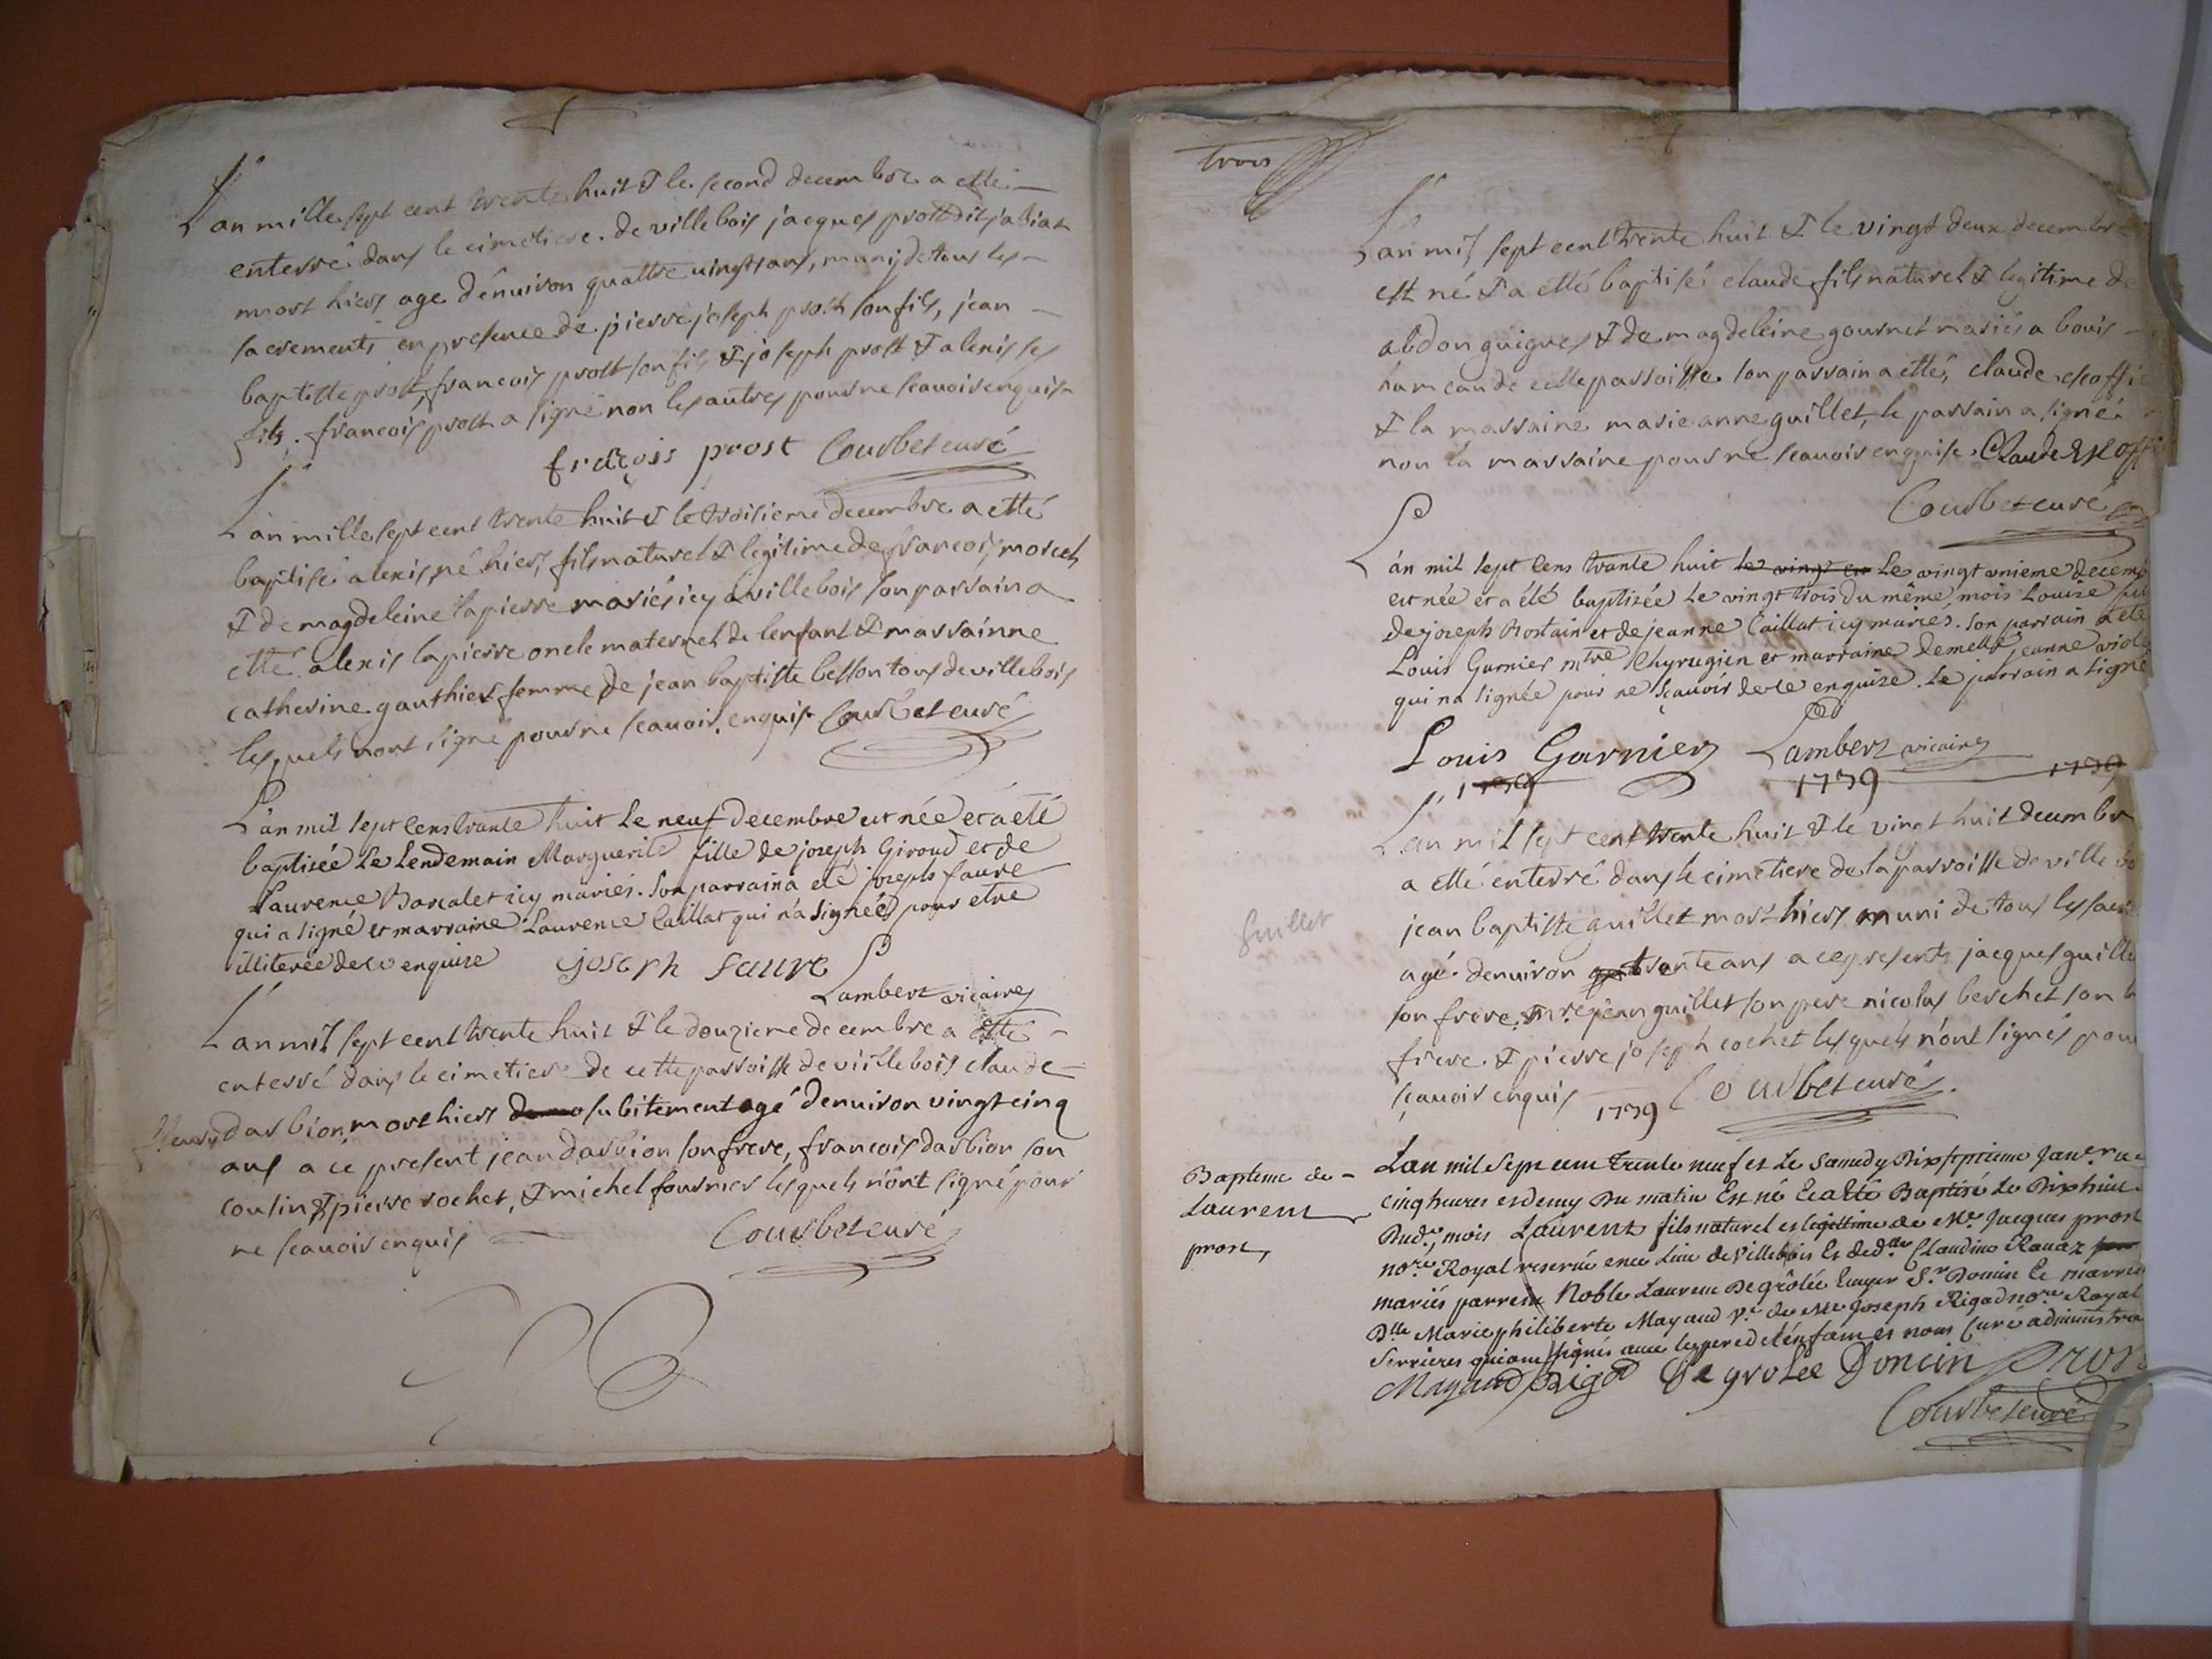 L'an mille sept cent trente huit & le second decembre a etté
enterré dans le cimetiere de villebois jacques prost dit jabiat
mort hier, age d'enuiron quattre uingt ans, muni de tous les
sacrements en presence de pierre joseph prost son fils, jean
baptiste prost, francois prost son fils & joseph prost & alexis ses
fils. francois prost a signé non les autres pour ne scauoir enquis
francois prost Courbet curé
L'an mille sept cent trente huit & le troisieme decembre a etté
baptisé alexis, né hier, fils naturel & legitime de francois morel
& de magdeleine lapierre mariés icy a villebois son parrain a
etté alexis lapierre oncle maternel de lenfant & marrainne
catherine gauthier femme de jean baptiste besson tous de villebois
lesquels n'ont signé pour ne scauoir enquis Courbet curé
L'an mil sept cens trante huit le neuf decembre est née et a été
baptisée le lendemain Marguerite fille de joseph Giroud et de
Laurence Bascalet icy mariés. Son parrain a eté joseph faure
qui a signé et marraine Laurence Caillat qui n'a signée pour etre
illiterée de ce enquise joseph faure
Lambert vicaire
L'an mil sept cent trente huit & le douzieme decembre a etté
enterré dans le cimetiere de cette parroisse de villebois claude
darbion, mort hier subitement agé denuiron vingt cinq
ans a ce present jean darbion son frere, francois darbion son
cousin & pierre rochet, & michel fournier lesquels n'ont signé pour
ne scauoir enquis Courbet curé
trois
L'an mil sept cent trente huit & le vingt deux decembre
est né & a etté baptisé claude fils naturel & legitime de
abdon guigues & de magdeleine gournet mariés a bouis
hameau de cette parroisse son parrain a etté, claude escoffie
& la marraine marie anne guillet, le parrain a signé
non la marraine pour ne scauoir enquise. Claude Escoffi
Courbet curé
L'an mil sept cens trante huit le vingt un Le vingt unieme decemb
est née et a été baptisée le vingt trois du même mois Louise
de joseph Rostain et de jeanne Caillat icy mariés. Son parrain a eté
Louis Garnier mtre Chyrugien et marraine demelle jeanne
qui n'a signée pour ne sçauoir de ce enquise. Le parrain a signé
Louis Garnier Lambert vicaire
1739 1739 1739
L'an mil sept cent trente huit & le vingt huit decembr
a etté enterré dans le cimetiere de la parroisse de ville bo
Guillet
jean baptiste guillet mort hier, muni de tous les sacre
agé denuiron trante ans a ce presents jacques guille
son frere, jean guillet son pere nicolas berchet son b
frere & pierre joseph cochet lesquels n'ont signés pou
sçauoir enquis 1739 Courbet curé
Bapteme de
Laurent
prost,
L'an mil sept cent trente neuf et le samedy dix septieme Janer a
cinq heures et demy du matin Est né Et a Eté Baptisé le Dix huit
Dud., mois Laurent fils naturel et legittime de Me Jacques prost
nore Royal reservé en ce lieu de Villebois Et de dlle Claudine Rauaz
mariés parrein Noble Laurent De grôlée Ecuyer Sr Doncin Et marrei
Dlle Marie philiberte Mayaud Ve de Me Joseph Rigad nore Royal
Serrieres qui ont signés auec le pere de l'enfant et nous Curé administra
Mayaud Rigod De grolee Doncin Prost
Courbet curé